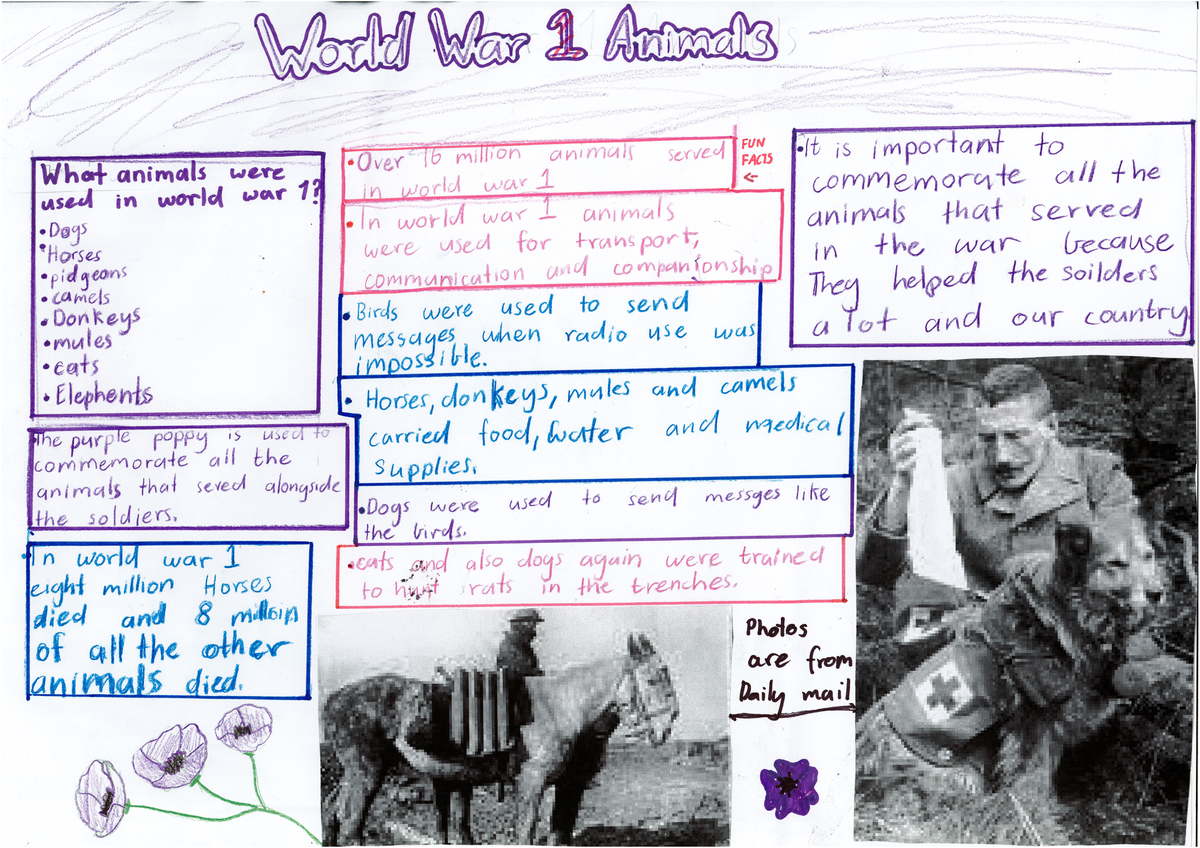 World War 1 Animals
What animals were
used in world war 1?
•Dogs
•Horses
•pidgeons
•camels
•Donkeys
•mules
•cats
•Elephents
The purple poppy is used to
commemorate all the
animals that seved alongside
the soldiers.
•In world war 1
eight million Horses
died and 8 milloin
of all the other
animals died.
•Over 16 million animals served
in world war 1
FUN
FACTS
←
•In world war 1 animals
were used for transport,
communication and companionship
•Birds were used to send
messages when radio use was
impossible.
• Horses, donkeys, mules and camels
carried food, water and medical
supplies.
•Dogs were used to send messges like
the birds.
•cats and also dogs again were trained
to hunt rats in the trenches.
Photos
are from
Daily mail
•It is important to
commemorate all the
animals that served
in the war because
They helped the soilders
a lot and our country